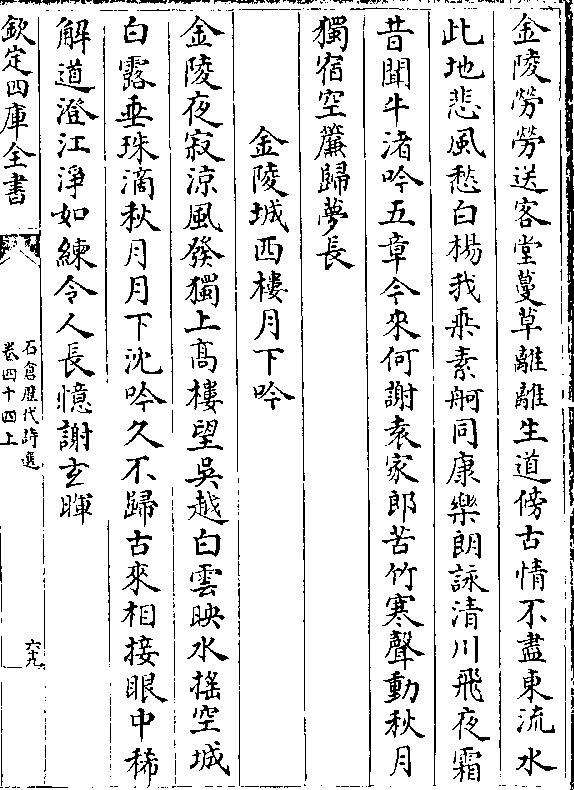 金陵勞勞送客堂蔓草離離生道傍古情不盡東流水
此地悲風愁白楊我乘素舸同康樂朗詠清川飛夜霜
昔聞牛渚吟五章今來何謝袁家郎苦竹寒聲動秋月
獨宿空簾歸夢長
金陵城西樓月下吟
金陵夜寂涼風發獨上高樓望吳越白雲映水搖空城
白露垂珠滴秋月月下沈吟久不歸古來相接眼中稀
解道澄江淨如練令人長憶謝玄暉
欽定四庫全書
石倉歷代詩選
卷四十四上
六九